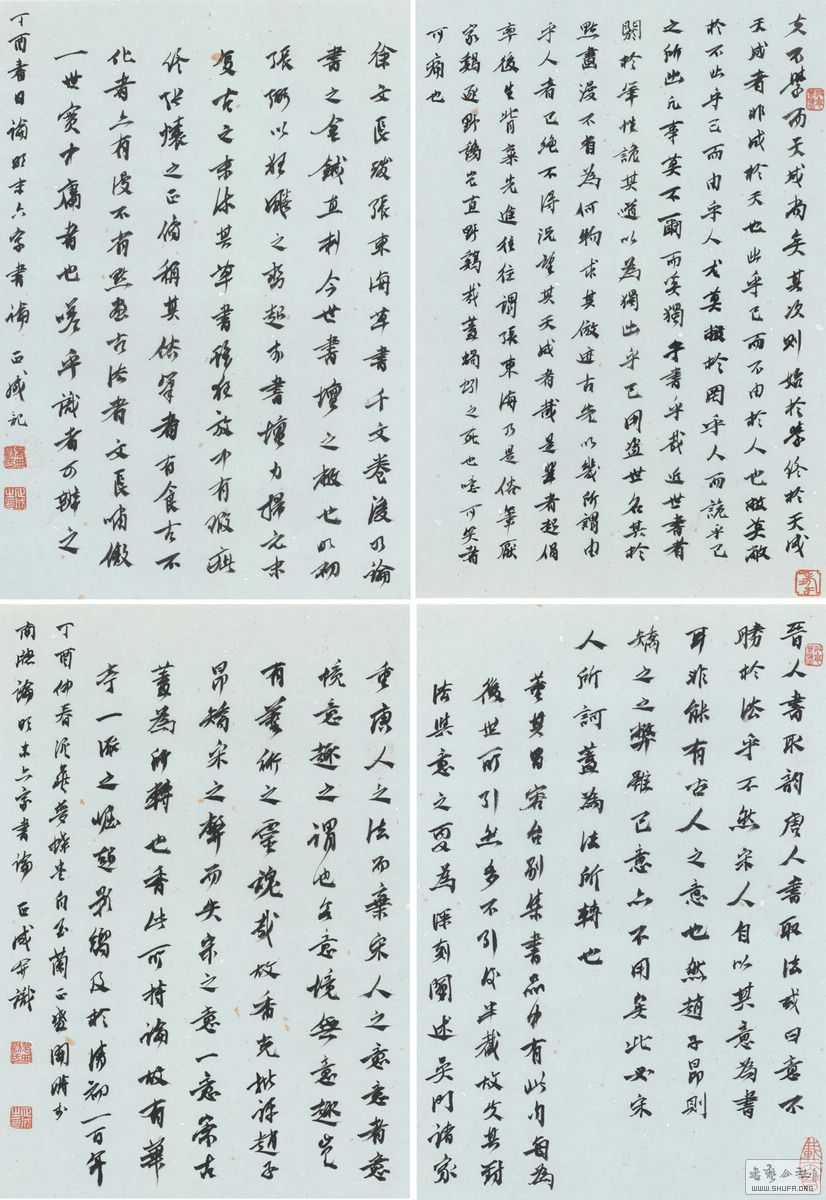 夫不學而天成尚矣其次則始於學終於天成
天成者非成於天也出乎己而不由於人也敝莫敝
於不出乎己而由乎人尤莫敝於罔乎人而詭乎己
之所出凡事莫不爾而奚獨於書乎哉近世書者
閼於筆性詭其道以為獨出乎己用盜世名其於
點畫漫不省為何物求其倣迹古先以幾所謂由
乎人者已絕不得況望其天成者哉是輩者起倡
率後生背棄先進往往謂張東海乃是俗筆厭
家鷄逐野鷄豈直野鷄哉蓋蝸蚓之死也噫可笑者
可痛也
徐文長跋張東海草書千文卷後乃論
書之金鍼直刺今世書壇之敝也明初
張弼以狂飈之勢起於書壇力掃元末
復古之末流其草書雖狂放中有瑕疵
之正俗稱其佚筆者有食古不
化者亦有漫不省點画古法者文長
一世實中庸者也嗟乎識者可辨之
丁酉春日論明末六家書論 正成記
晉人書取韵唐人書取法或曰意不
勝於法乎不然宋人自以其意為書
耳非能有古人之意也然趙子昂則
矯之之弊雖己意亦不用矣此必宋
人所訶蓋為法所轉也
董其昌容台別集書品中有此句每為
後世所引然多不引後半截故失其對
法與意之要為深刻闡述吳門諸家
重唐人之法而棄宋人之意意者意
境意趣之謂也無意境無意趣豈
有藝術之靈魂哉故香光批評趙子
昂矯宋之弊而失宋之意一意崇古
蓋為所轉也香光可持論故有華
亭一派之崛起影響及於清初一百年
丁酉仲春夢蝶白玉蘭正盛開時書
南牕論明末六家書論 正成并識
WWW.SHUFA.ORG